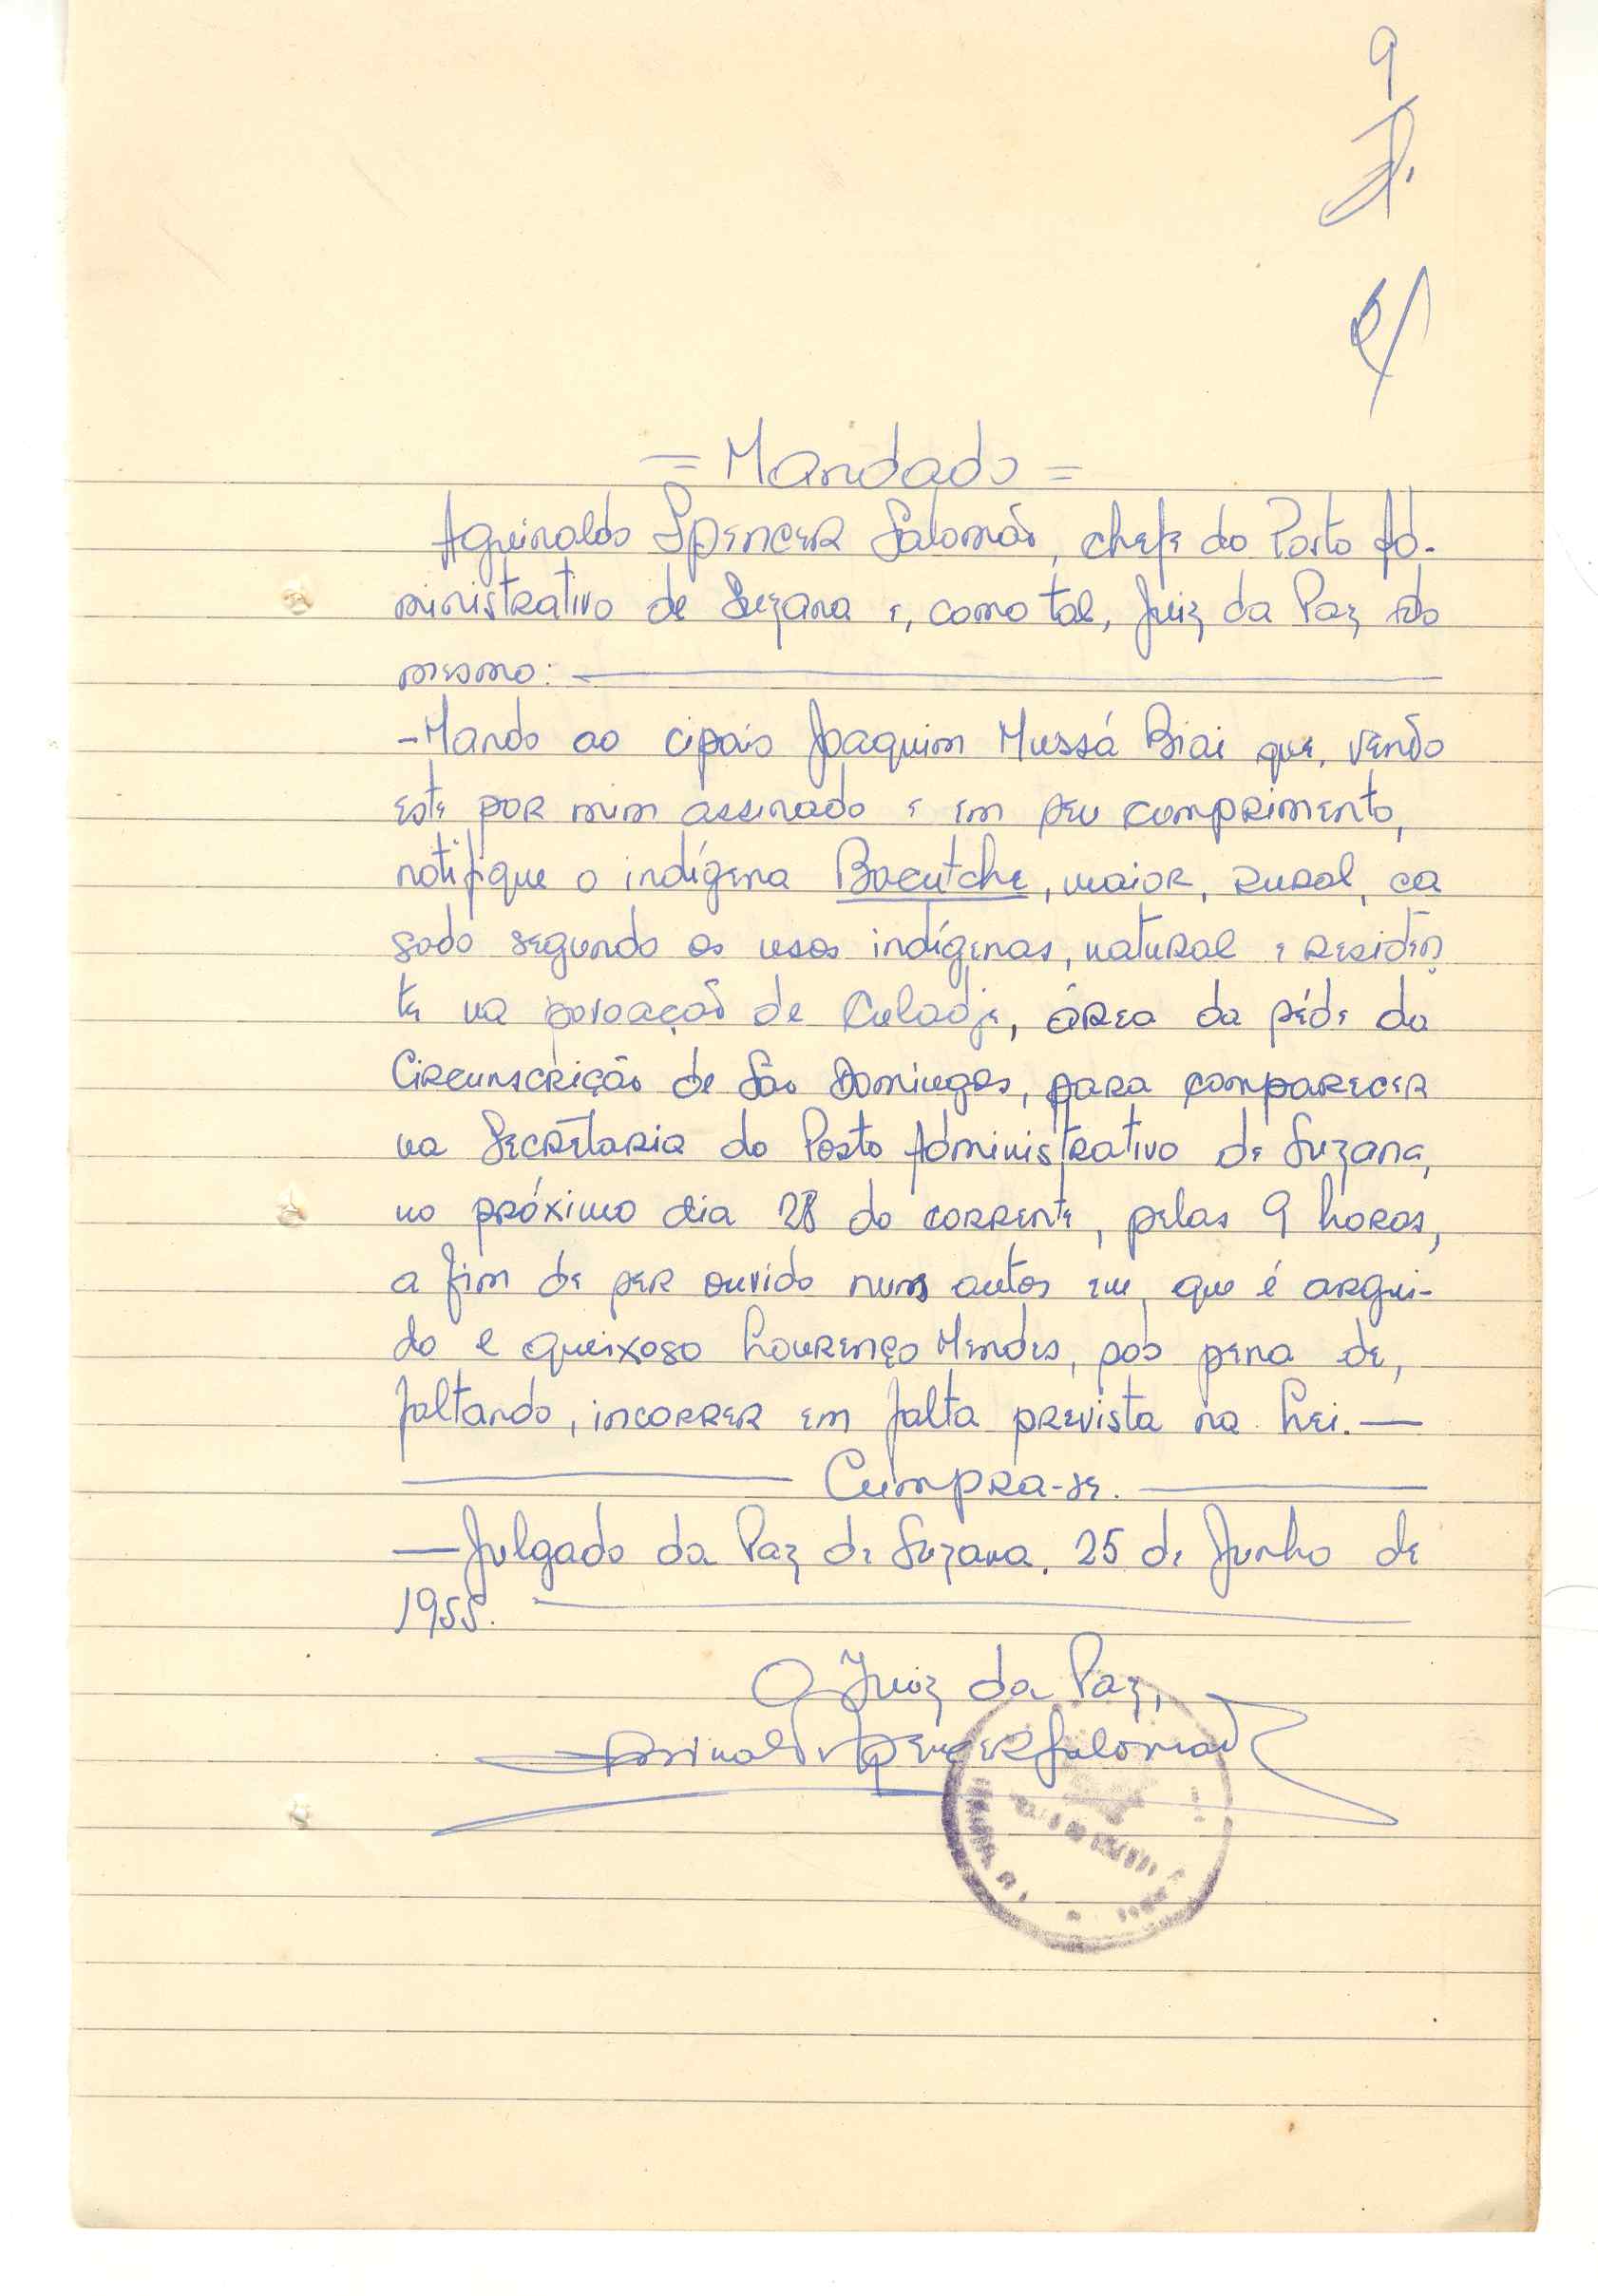 9
= Mandado =
Aguinaldo Spencer Salomão, chefe do Posto Ad-
ministrativo de Suzana e, como tal, Juiz da Paz do
mesmo:
- Mando ao cipaio Joaquim Mussá Biai que, vendo
este por mim assinado e em seu comprimento,
notifique o indígena Bocutche, maior, rural, ca
sado segundo os usos indígenas, natural e residen
te na povoação de Culadje, área da séde da
Circunscrição de São Domingos, para comparecer
na Secretaria do Posto Administrativo de Suzana,
no próximo dia 28 do corrente, pelas 9 horas,
a fim de ser ouvido nuns autos em que é argui-
do e queixoso Lourenço Mendes, sob pena de,
faltando, incorrer em falta prevista na Lei. —
Cumpra-se.
— Julgado da Paz de Suzana, 25 de Junho de
1955.
O Juiz da Paz,
Aguinaldo Spencer Salomão